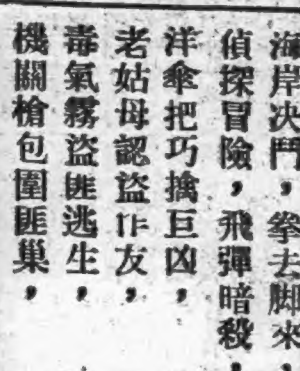 海岸决鬥，拳去脚來，
偵探冒險，飛彈暗殺，
洋傘把巧擒巨凶，
老姑母認盜作友，
毒氣霧盜匪逃生，
機關槍包圍匪巢，